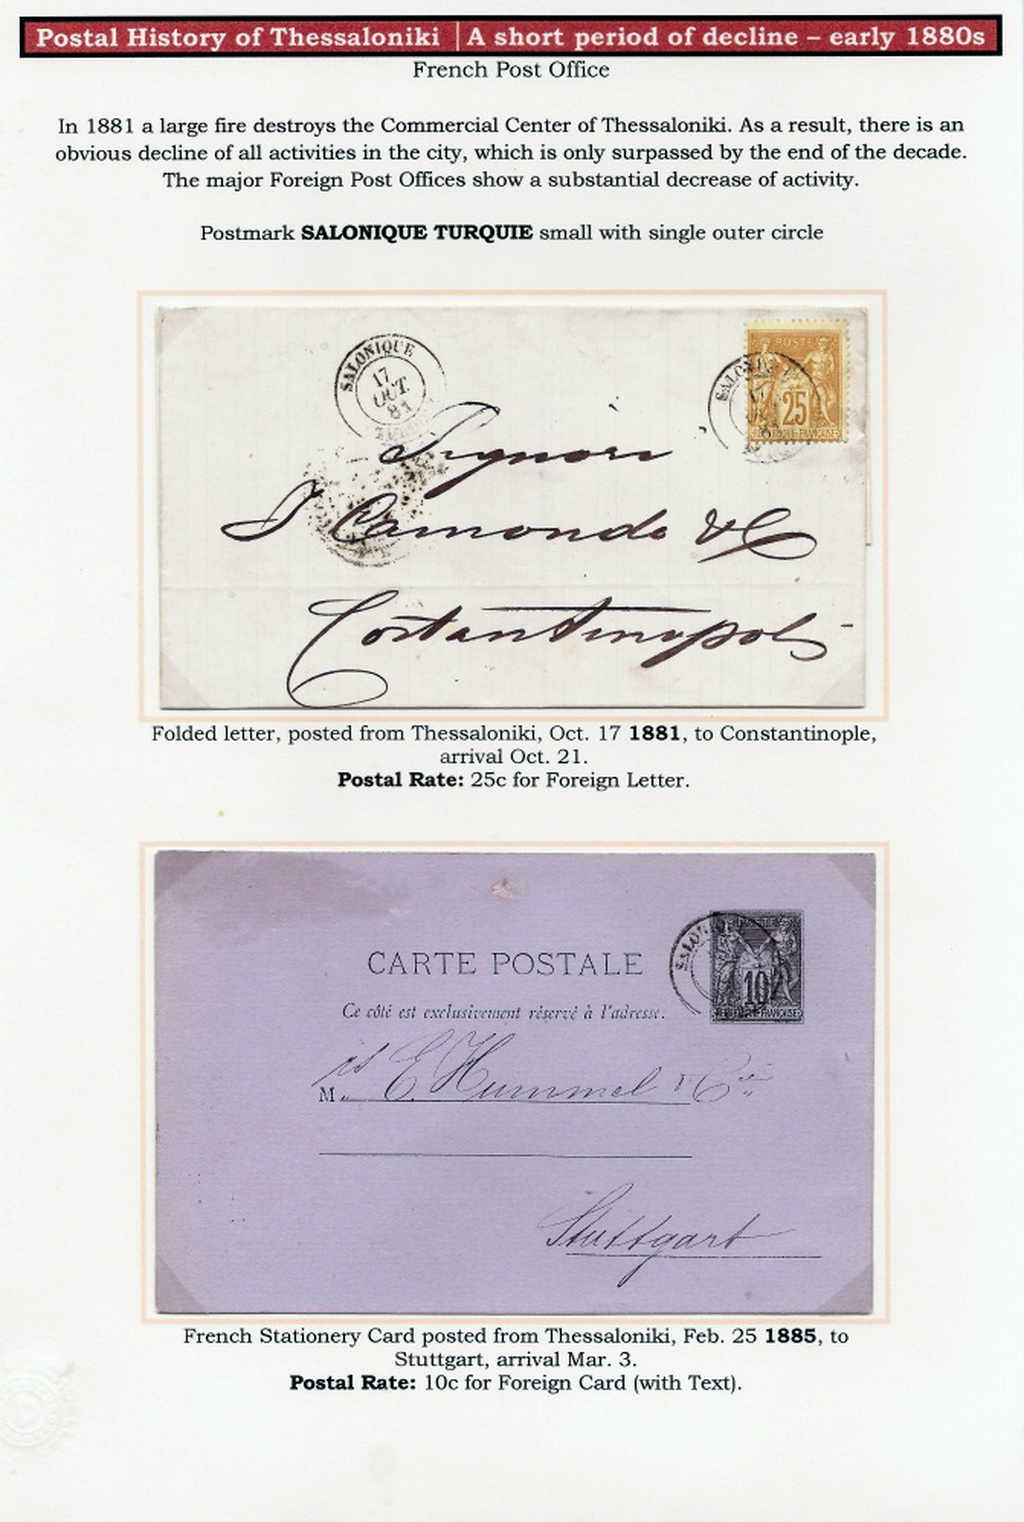 Postal History of Thessaloniki | A short period of decline – early 1880s
French Post Office
In 1881 a large fire destroys the Commercial Center of Thessaloniki. As a result, there is an
obvious decline of all activities in the city, which is only surpassed by the end of the decade.
The major Foreign Post Offices show a substantial decrease of activity.
Postmark SALONIQUE TURQUIE small with single outer circle
SALONIQUE
17
OCT.
81
POSTE
SALONIQUE
17
25
Signori
I Camondo & C
Costantinopoli
Folded letter, posted from Thessaloniki, Oct. 17 1881, to Constantinople,
arrival Oct. 21.
Postal Rate: 25c for Foreign Letter.
SALONIQUE
POSTE
10
REPUBLIQUE FRANÇAISE
CARTE POSTALE
Ce côté est exclusivement réservé à l'adresse.
M. rs E. Hummel & Cie
Stuttgart
French Stationery Card posted from Thessaloniki, Feb. 25 1885, to
Stuttgart, arrival Mar. 3.
Postal Rate: 10c for Foreign Card (with Text).